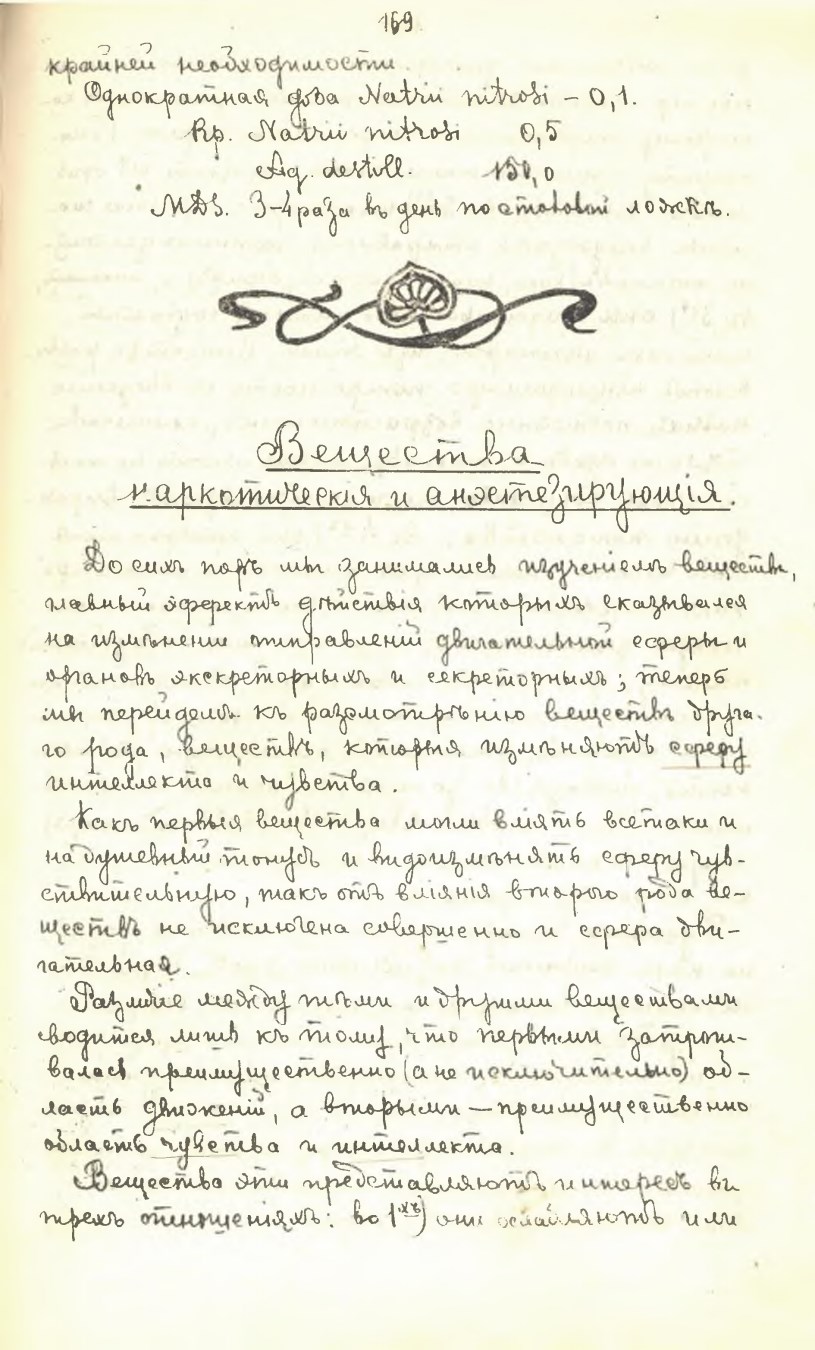 169
крайней необходимости.
Однократная доза Natrii nitrosi – 0,1.
Rp. Natrii nitrosi 0,5
Aq. destill. 150,0
MDS. 3–4 раза въ день по столовой ложкѣ.
Вещества
наркотическія и анэстезирующія.
До сихъ поръ мы занимались изученіемъ веществъ,
главный эффектъ дѣйствія которыхъ сказывался
на измѣненіи отправленій двигательной сферы и
органовъ экскреторныхъ и секреторныхъ; теперь
мы перейдемъ къ разсмотрѣнію веществъ друга-
го рода, веществъ, которыя измѣняютъ сферу
интеллекта и чувства.
Какъ первыя вещества могли вліять всетаки и
на душевный тонусъ и видоизмѣнять сферу чув-
ствительную, такъ отъ вліянія второго рода ве-
ществъ не исключена совершенно и сфера дви-
гательная.
Различіе между тѣми и другими веществами
сводится лишь къ тому, что первыми затроги-
валась преимущественно (а не исключительно) об-
ласть движеній, а вторыми — преимущественно
область чувства и интеллекта.
Вещества эти представляютъ интересъ въ
трехъ отношеніяхъ: во 1хъ) они ослабляютъ или